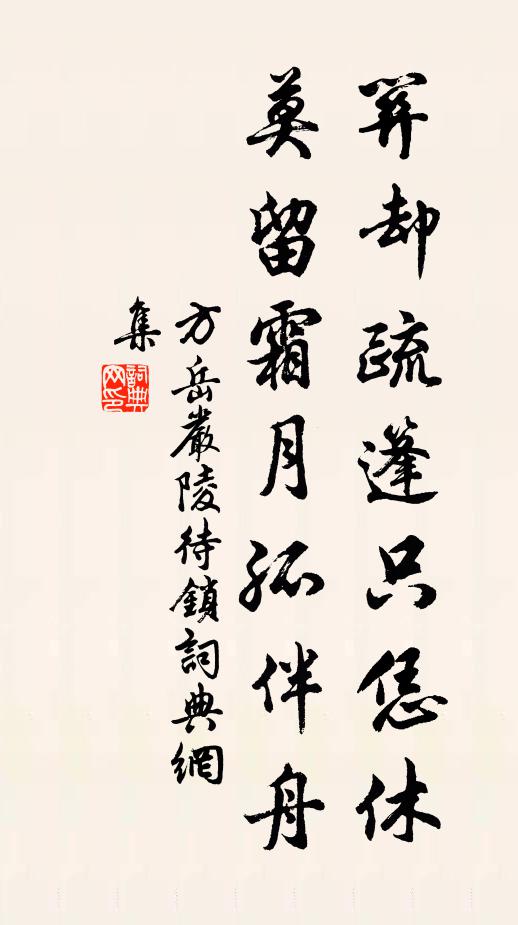 却疏篷只恁休
莫留霜月孤伴舟
方岳嚴陵待鎖詞典網
集
詞典
网印